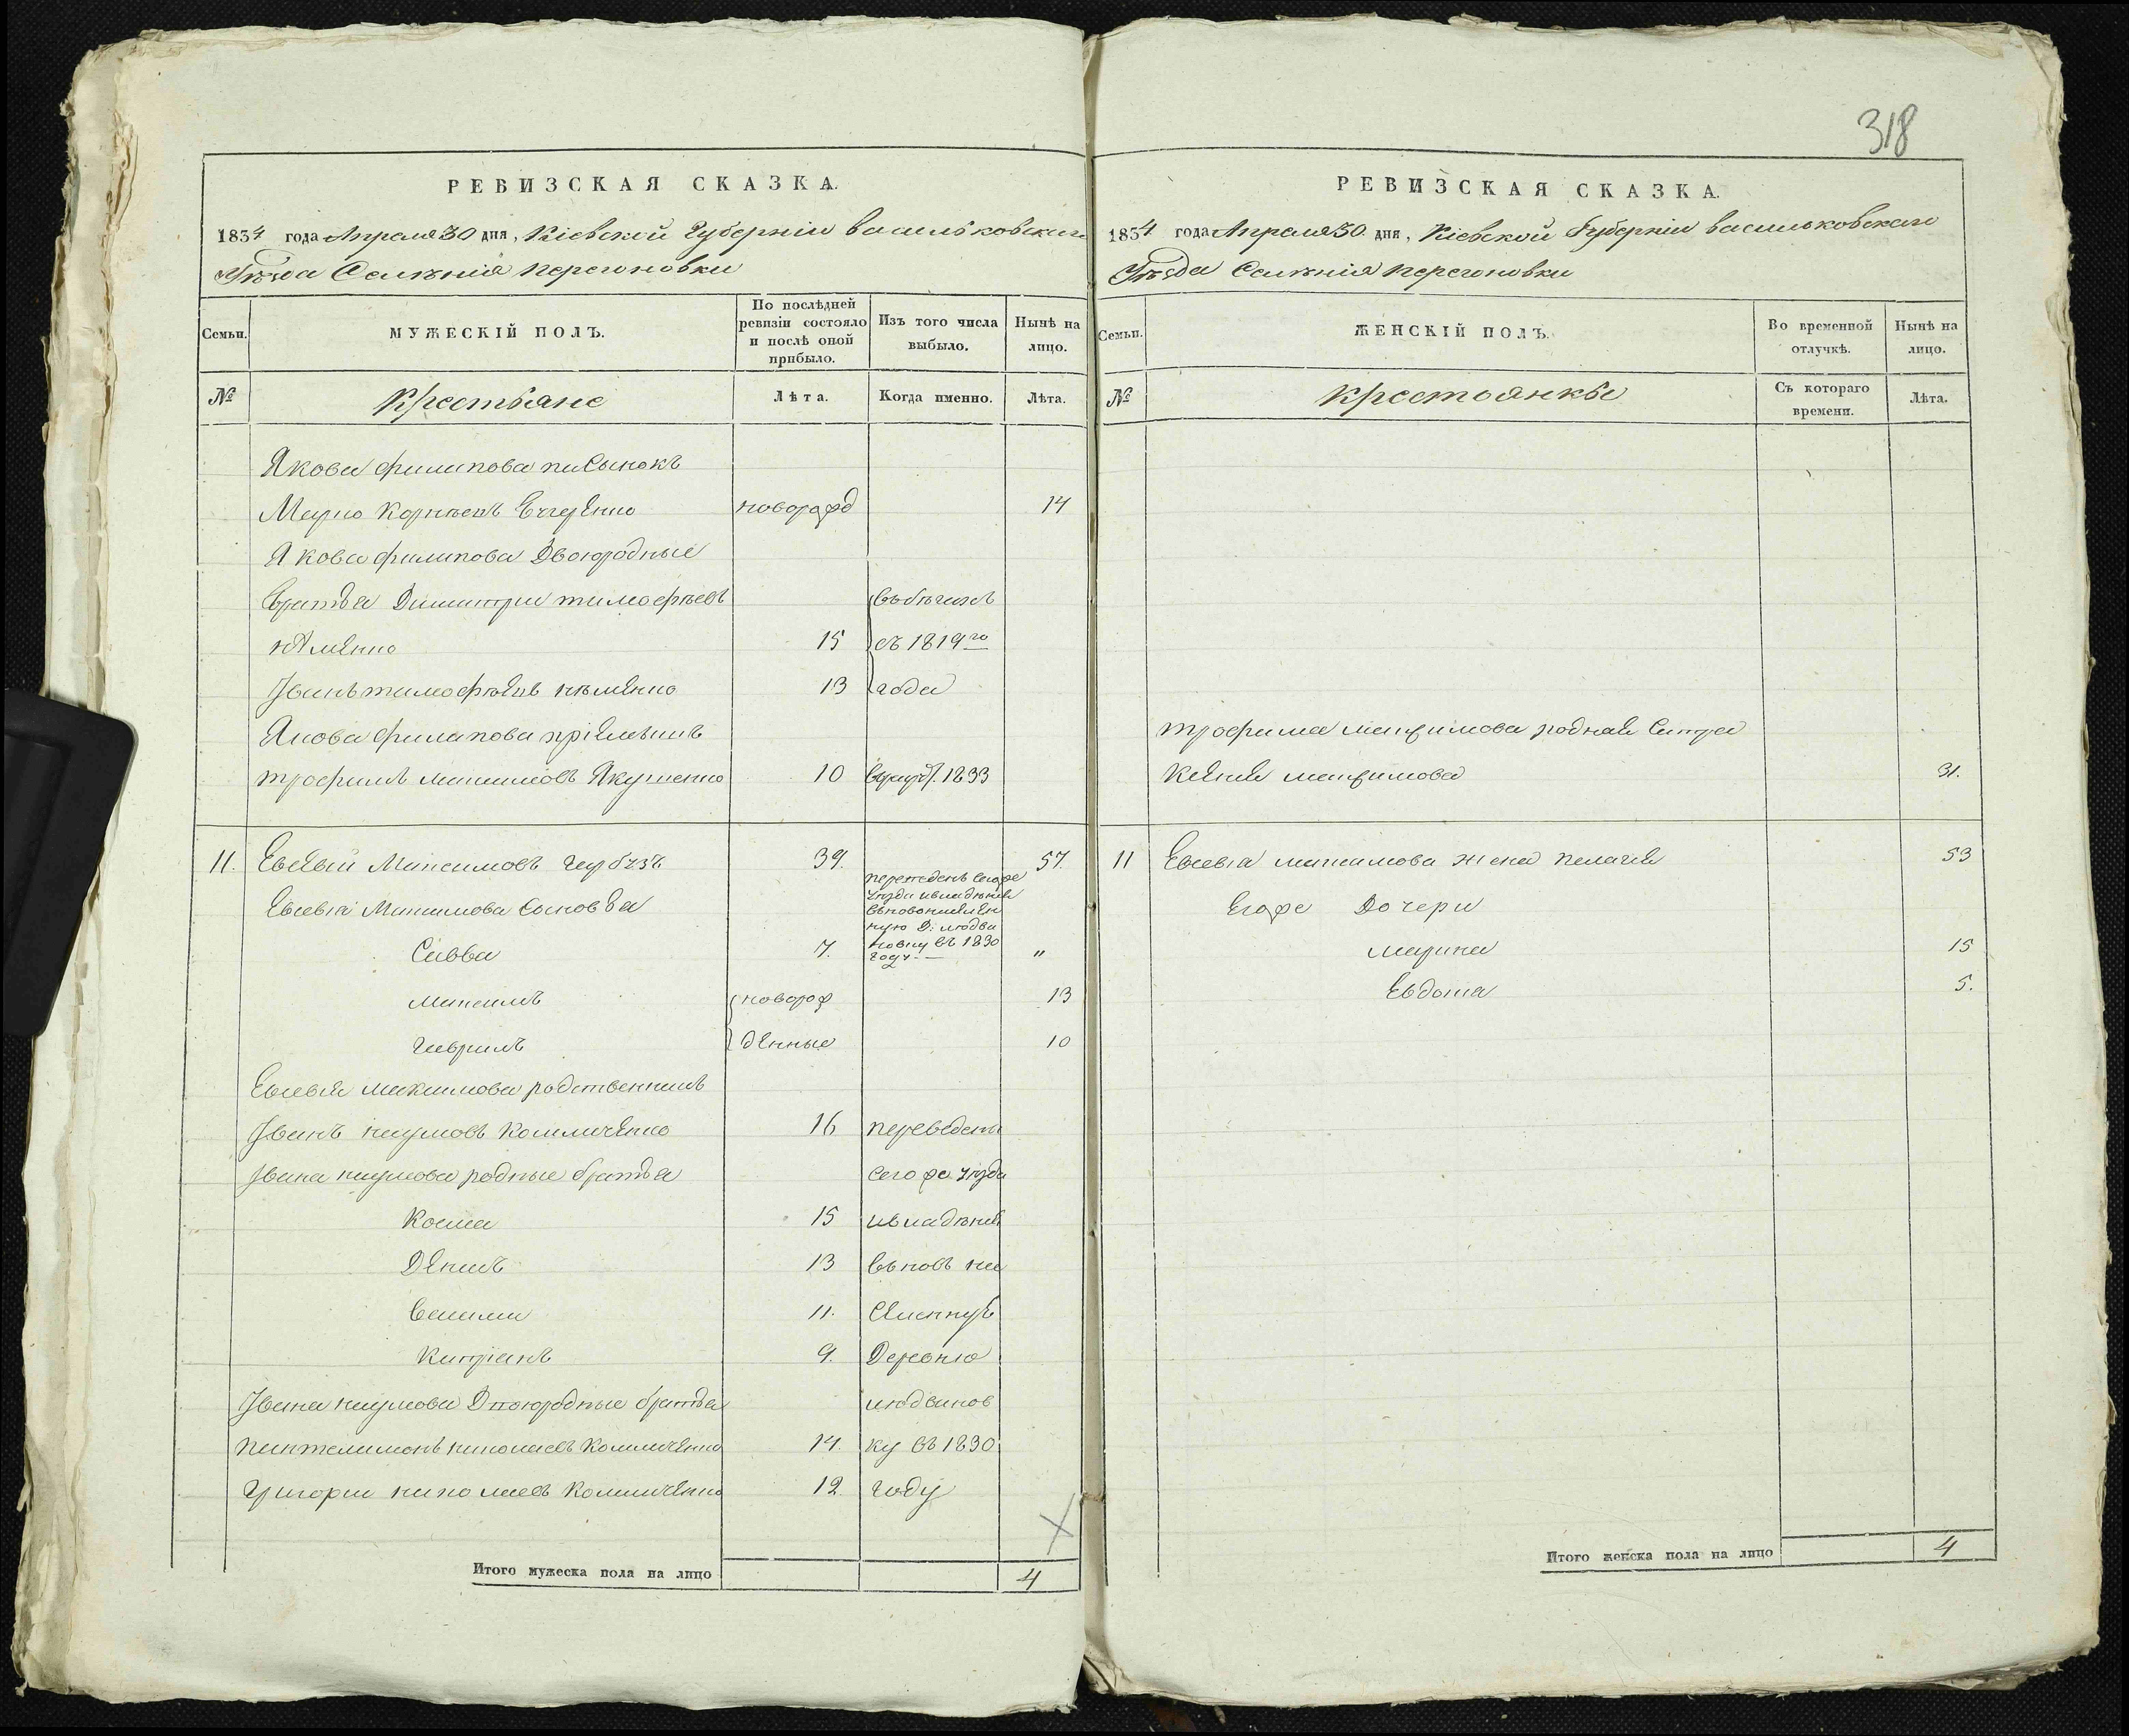 318
РЕВИЗСКАЯ СКАЗКА.
1834 года Апреля 30 дня, Кіевской Губерніи васильковскаго
Уѣзда Селѣнія перегоновки
Семьи.
МУЖЕСКІЙ ПОЛЪ.
По послѣдней ревизіи состояло и послѣ оной прибыло.
Изъ того числа выбыло.
Нынѣ на лицо.
№
Крестьяне
Лѣта.
Когда именно.
Лѣта.
Якова филипова пасынокъ
Марко Корнеевъ новорожд 14
Якова филипова Двоюродные
братья Димитри тимофѣевъ въ бѣгахъ
15 съ 1819го
Іванъ тимофѣевъ 13 года
Якова филипова пріемышъ
трофимъ максимовъ Якушенко 10 1833
11. Евсевій Максимовъ 39. 57.
Евсевія Максимова сыновья
переведенъ сегоже
уѣзда
въ новонаселен
ную Д: людви
новку въ 1830
году
Савва 7. "
Максимъ новорож 13
Гаврилъ денные 10
Евсевія максимова родственникъ
Іванъ наумовъ 16 переведены
Івана наумова родные братья сегоже уѣзда
Косма 15
Денисъ 13 въ новь на
Василий 11. селенную
Кипріанъ 9. Деревню
Івана наумова Двоюродные братья людвинов
пантелимонъ николаевъ 14. ку въ 1830
Григори николаевъ 12. году
Итого мужеска пола на лицо 4
РЕВИЗСКАЯ СКАЗКА.
1834 года Апреля 30. дня, Кіевской Губерніи васильковскаго
Уѣзда Селѣнія перегоновки
Семьи.
ЖЕНСКІЙ ПОЛЪ.
Во временной отлучкѣ.
Нынѣ на лицо.
№
крестьянки
Съ котораго времени.
Лѣта.
трофима максимова родная сестра
Ксенія максимова 31.
11 Евсевія максимова жена пелагея 53
Егоже Дочери
марина 15
Евдокія 5.
Итого женска пола на лицо 4